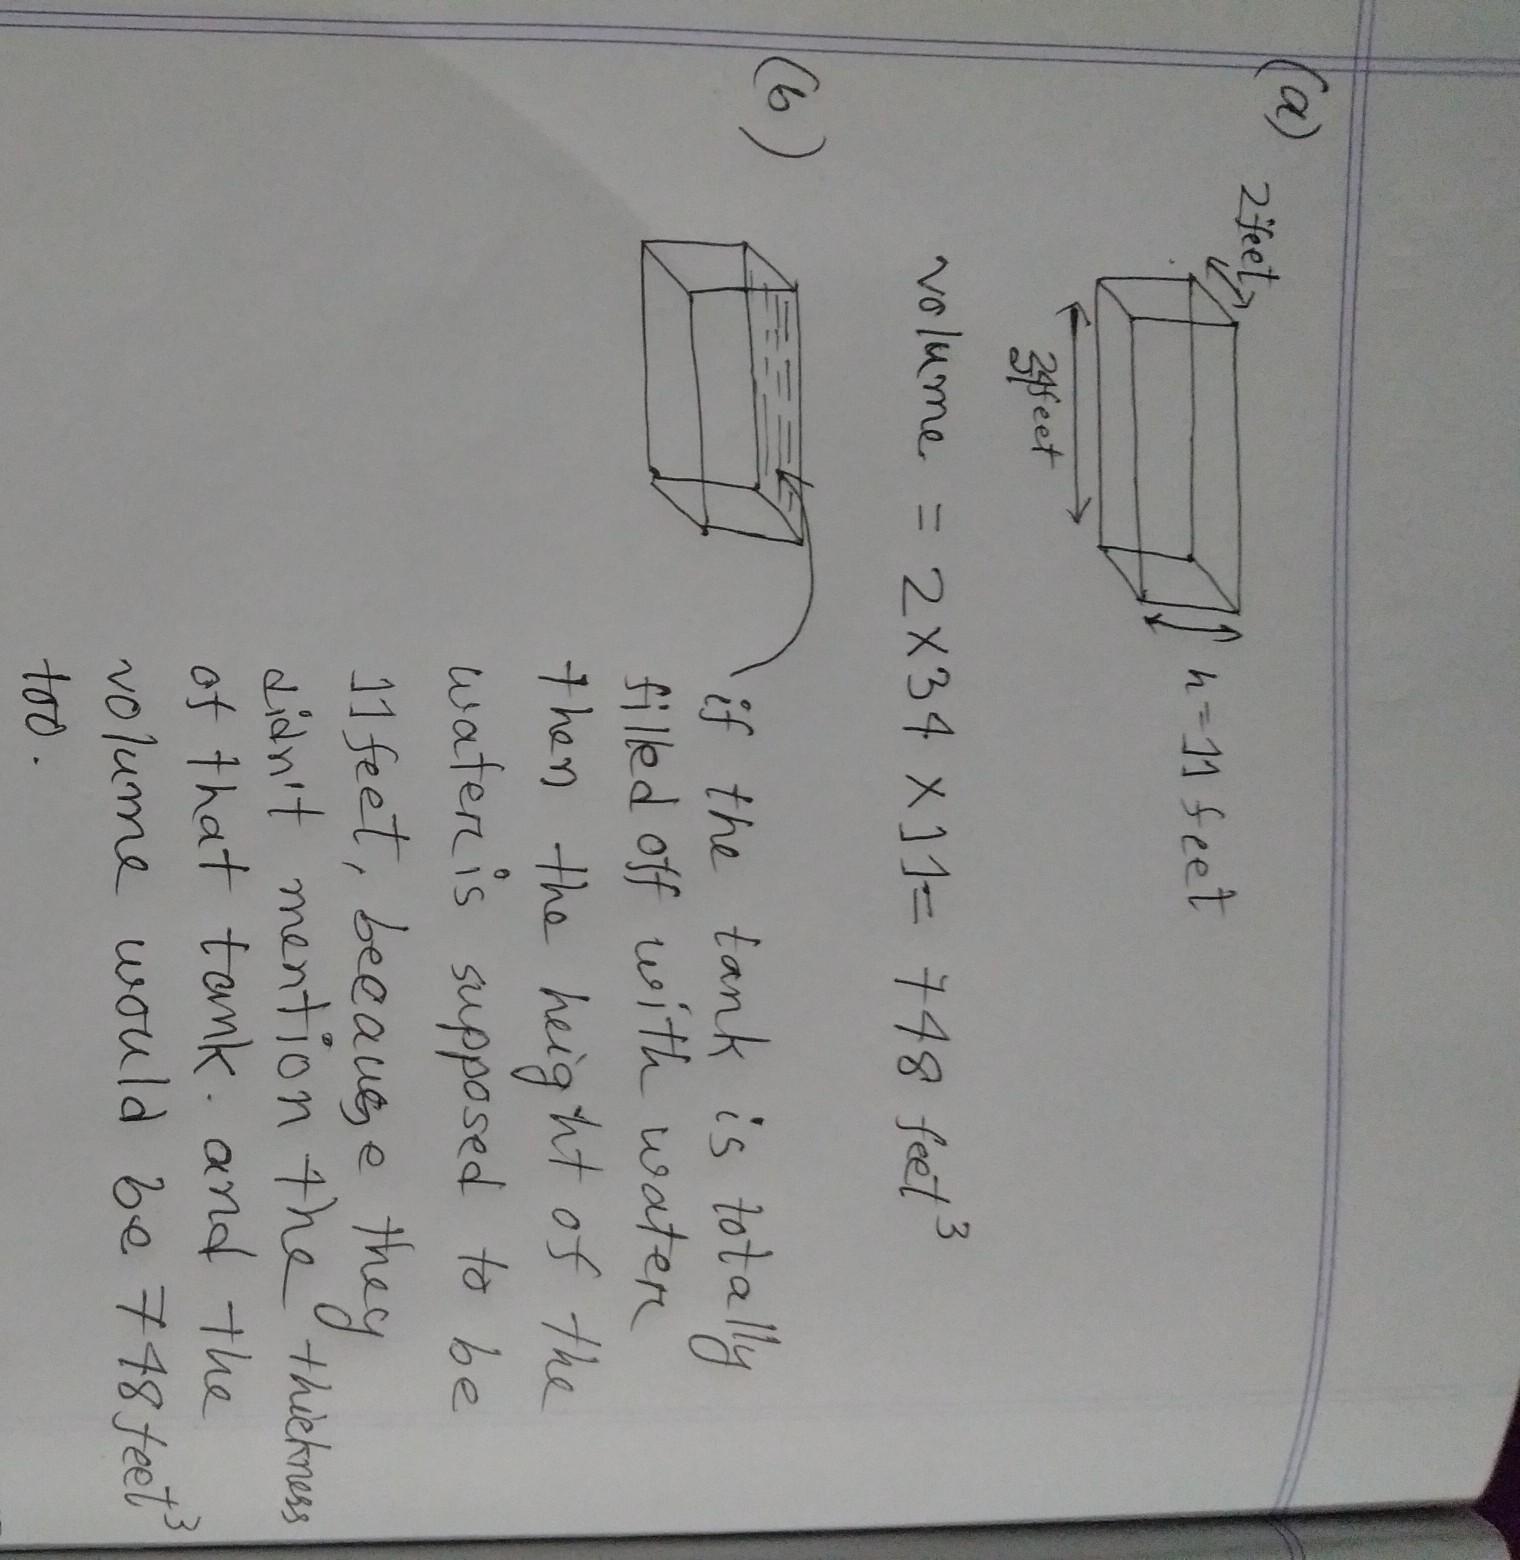 (a)
2feet
h=11 feet
34feet
volume = 2×34×11= 748 feet³
(b)
if the tank is totally
filled off with water
then the height of the
water is supposed to be
11feet, because they
didn't mention the thickness
of that tank. and the
volume would be 748feet³
too.